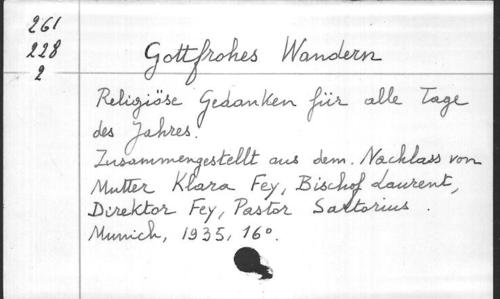 261
228
2
Gottfrohes Wandern
Religiöse Gedanken für alle Tage
des Jahres.
Zusammengestellt aus dem Nachlass von
Mutter Klara Fey, Bischof Laurent,
Direktor Fey, Pastor Sartorius.
Munich, 1935, 16°.